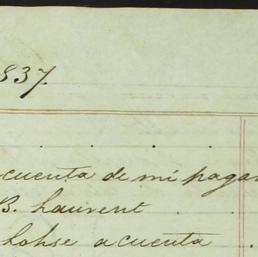 837.
cuenta de mi pagar
B. Laurent
Lohse a cuenta